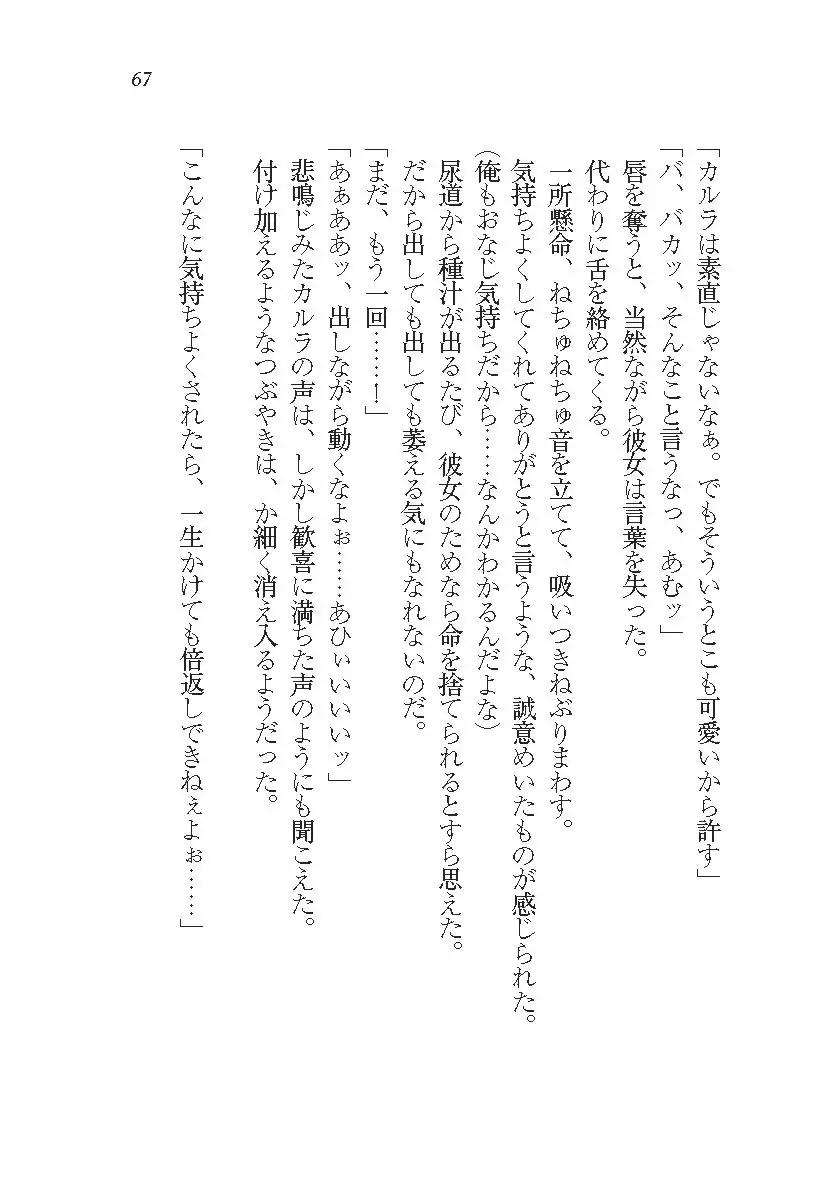 67
「カルラは素直じゃないなぁ。でもそういうとこも可愛いから許す」
「バ、バカッ、そんなこと言うなっ、あむッ」
唇を奪うと、当然ながら彼女は言葉を失った。
代わりに舌を絡めてくる。
一所懸命、ねちゅねちゅ音を立てて、吸いつきねぶりまわす。
気持ちよくしてくれてありがとうと言うような、誠意めいたものが感じられた。
(俺もおなじ気持ちだから……なんかわかるんだよな)
尿道から種汁が出るたび、彼女のためなら命を捨てられるとすら思えた。
だから出しても出しても萎える気にもなれないのだ。
「まだ、もう一回……!」
「あぁああッ、出しながら動くなよぉ……あひぃぃいいッ」
悲鳴じみたカルラの声は、しかし歓喜に満ちた声のようにも聞こえた。
付け加えるようなつぶやきは、か細く消え入るようだった。
「こんなに気持ちよくされたら、一生かけても倍返しできねぇよぉ……」